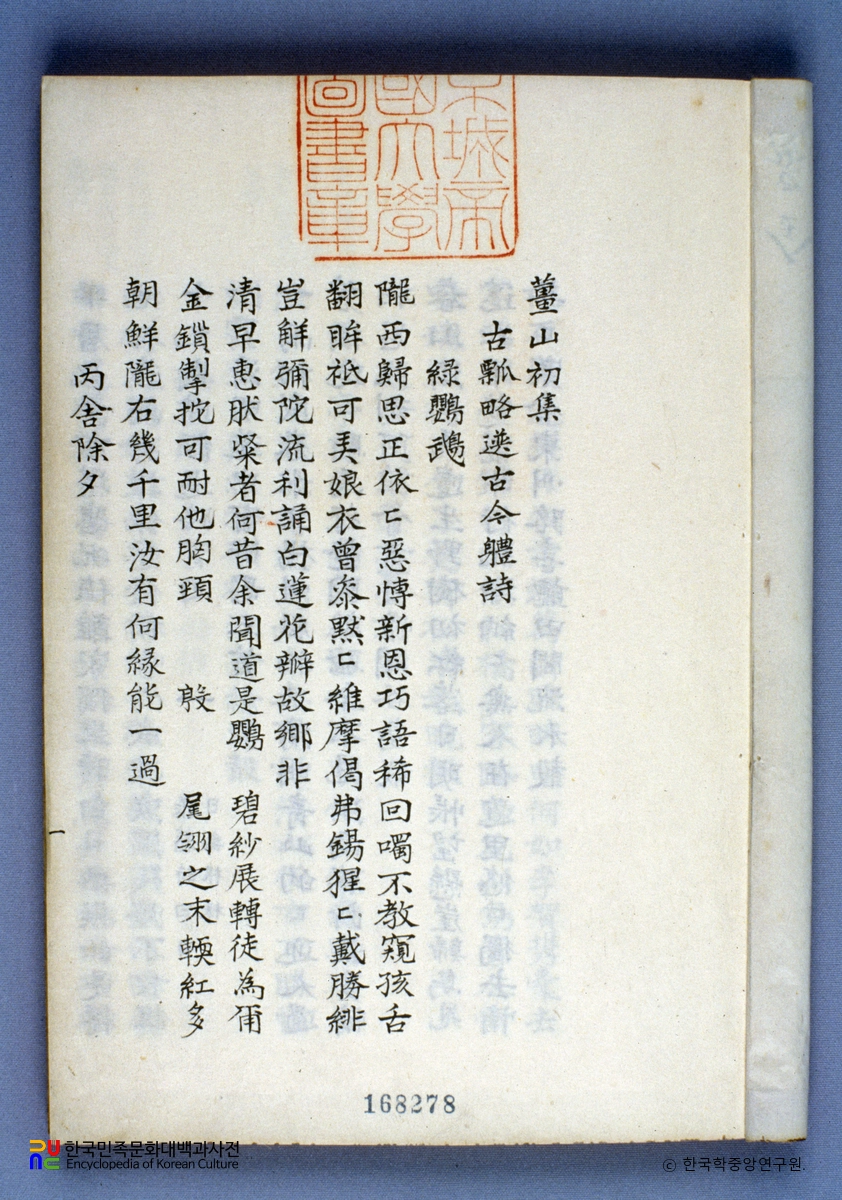 京城帝
國大學
圖書章
薑山初集
古瓢略選古今體詩
綠鸚鵡
隴西歸思正依ヒ惡慱新恩巧語稀回噣不教窺孩舌
翻眸祗可美娘衣曾叅默ヒ維摩偈弗錫猩ヒ戴勝緋
豈解彌陀流利誦白蓮花瓣故鄉非
清早惠肰粲者何昔余聞道是鸚 碧紗展轉徒為爾
金鎖掣挓可耐他胸頸 殷 尾翎之末輭紅多
朝鮮隴右幾千里汝有何緣能一過
丙舍除夕
168278
한국민족문화대백과사전
Encyclopedia of Korean Culture
© 한국학중앙연구원.